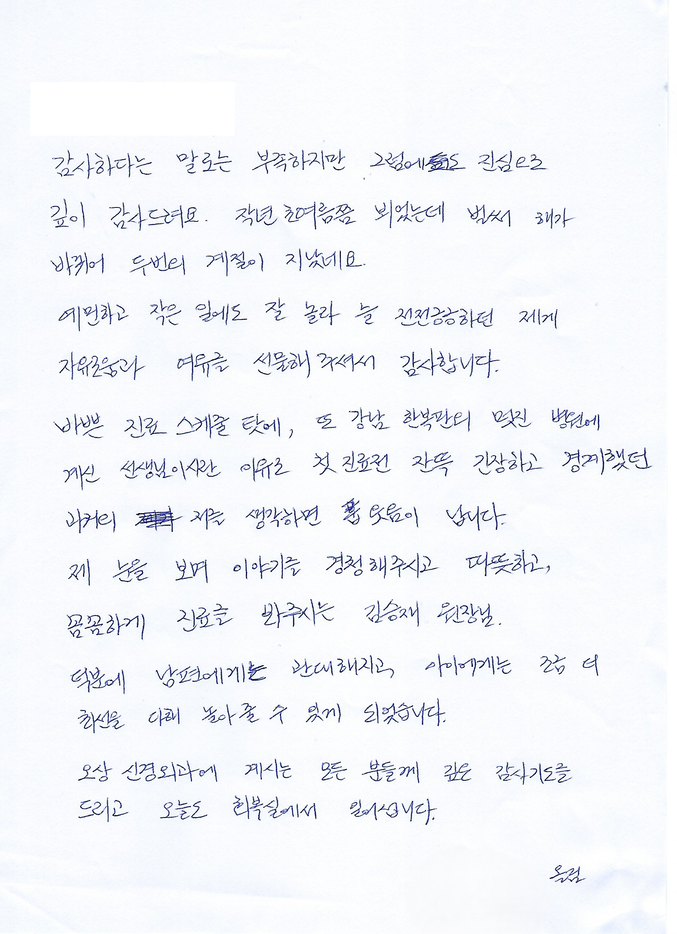 감사하다는 말로는 부족하지만 그럼에도 진심으로
깊이 감사드려요. 작년 초여름쯤 뵈었는데 벌써 해가
바뀌어 두번의 계절이 지났네요.
예민하고 작은 일에도 잘 놀라 늘 전전긍긍하던 제게
자유로움과 여유를 선물해 주셔서 감사합니다.
바쁜 진료 스케줄 탓에, 또 강남 한복판의 멋진 병원에
계신 선생님이시란 이유로 첫 진료전 잔뜩 긴장하고 경계했던
과거의 저를 생각하면 웃음이 납니다.
제 눈을 보며 이야기를 경청해주시고 따뜻하고,
꼼꼼하게 진료를 봐주시는 김승재 원장님.
덕분에 남편에게는 관대해지고, 아이에게는 조금 더
최선을 다해 놀아 줄 수 있게 되었습니다.
오상 신경외과에 계시는 모든 분들께 깊은 감사기도를
드리고 오늘도 회복실에서 일어섭니다.